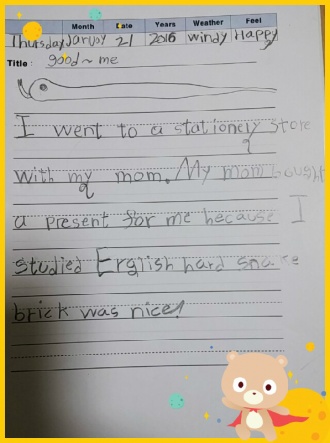 Month Date Years Weather Feel
Thursday Jarusy 21 2016 windy Happy
Title : good~me
I went to a stationely store
with my mom. My mom bought
a present for me because I
studied English hard snake
brick was nice!